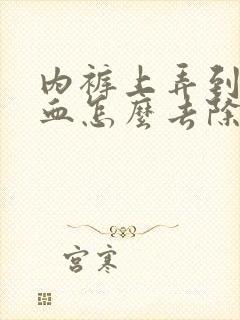 内裤上弄到
血怎麼去除
宫寒